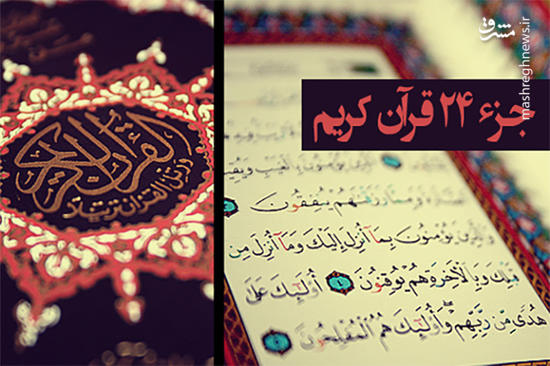 مشرق
mashreghnews.ir
جزء ۲۴ قرآن کریم
القرآن الكريم
ورتل القرآن ترتيلا
يُؤْمِنُونَ بِالْغَيْبِ وَيُقِي
وَمِمَّا رَزَقْنَاهُمْ يُنْفِقُونَ
وَالَّذِينَ يُؤْمِنُونَ بِمَا أُنْزِلَ إِلَيْكَ وَمَا أُنْزِلَ مِنْ
قَبْلِكَ وَبِالْآخِرَةِ هُمْ يُوقِنُونَ ٤ أُولَٰئِكَ عَلَىٰ
هُدًى مِنْ رَبِّهِمْ وَأُولَٰئِكَ هُمُ الْمُفْلِحُونَ